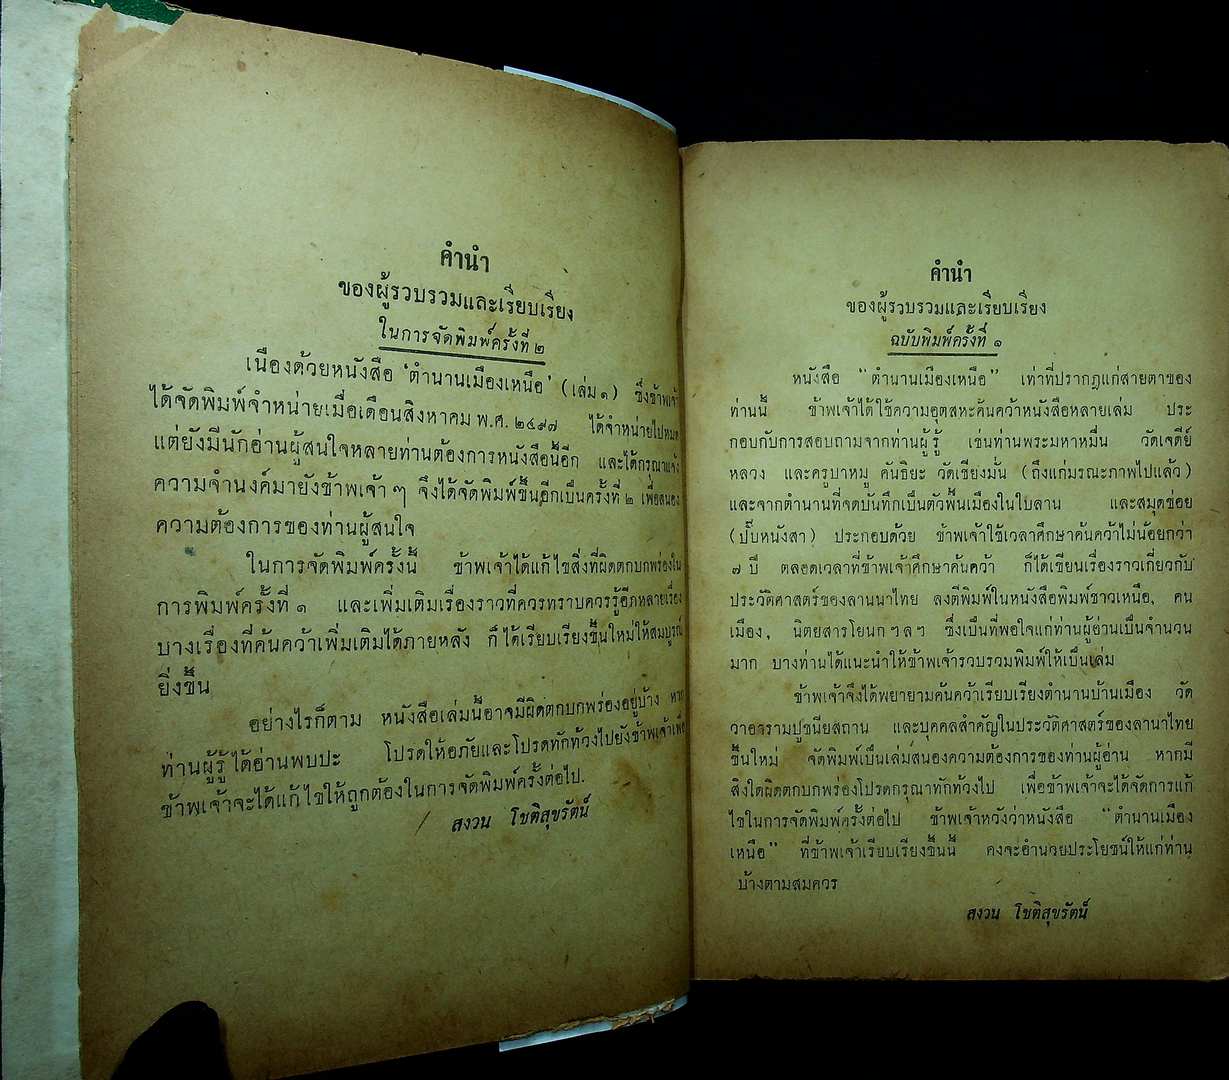 คำนำ
ของผู้รวบรวมและเรียบเรียง
ในการจัดพิมพ์ครั้งที่ ๒
เนื่องด้วยหนังสือ 'ตำนานเมืองเหนือ' (เล่ม ๑) ซึ่งข้าพเจ้า
ได้จัดพิมพ์จำหน่ายเมื่อเดือนสิงหาคม พ.ศ. ๒๔๙๗ ได้จำหน่ายไปหมด
แต่ยังมีนักอ่านผู้สนใจหลายท่านต้องการหนังสือนี้อีก และได้กรุณาแจ้ง
ความจำนงค์มายังข้าพเจ้า ๆ จึงได้จัดพิมพ์ขึ้นอีกเป็นครั้งที่ ๒ เพื่อสนอง
ความต้องการของท่านผู้สนใจ
ในการจัดพิมพ์ครั้งนี้ ข้าพเจ้าได้แก้ไขสิ่งที่ผิดตกบกพร่องใน
การพิมพ์ครั้งที่ ๑ และเพิ่มเติมเรื่องราวที่ควรทราบควรรู้อีกหลายเรื่อง
บางเรื่องที่ค้นคว้าเพิ่มเติมได้ภายหลัง ก็ได้เรียบเรียงขึ้นใหม่ให้สมบูรณ์
ยิ่งขึ้น
อย่างไรก็ตาม หนังสือเล่มนี้อาจมีผิดตกบกพร่องอยู่บ้าง หาก
ท่านผู้รู้ได้อ่านพบปะ โปรดให้อภัยและโปรดทักท้วงไปยังข้าพเจ้าเพื่อ
ข้าพเจ้าจะได้แก้ไขให้ถูกต้องในการจัดพิมพ์ครั้งต่อไป.
สงวน โชติสุขรัตน์
คำนำ
ของผู้รวบรวมและเรียบเรียง
ฉบับพิมพ์ครั้งที่ ๑
หนังสือ "ตำนานเมืองเหนือ" เท่าที่ปรากฏแก่สายตาของ
ท่านนี้ ข้าพเจ้าได้ใช้ความอุตสหะค้นคว้าหนังสือหลายเล่ม ประ
กอบกับการสอบถามจากท่านผู้รู้ เช่นท่านพระมหาหมื่น วัดเจดีย์
หลวง และครูบาหมู คันธิยะ วัดเชียงมั่น (ถึงแก่มรณะภาพไปแล้ว)
และจากตำนานที่จดบันทึกเป็นตัวพื้นเมืองในใบลาน และสมุดข่อย
(ปั๊บหนังสา) ประกอบด้วย ข้าพเจ้าใช้เวลาศึกษาค้นคว้าไม่น้อยกว่า
๗ ปี ตลอดเวลาที่ข้าพเจ้าศึกษาค้นคว้า ก็ได้เขียนเรื่องราวเกี่ยวกับ
ประวัติศาสตร์ของลานนาไทย ลงตีพิมพ์ในหนังสือพิมพ์ชาวเหนือ, คน
เมือง, นิตยสารโยนก ฯลฯ ซึ่งเป็นที่พอใจแก่ท่านผู้อ่านเป็นจำนวน
มาก บางท่านได้แนะนำให้ข้าพเจ้ารวบรวมพิมพ์ให้เป็นเล่ม
ข้าพเจ้าจึงได้พยายามค้นคว้าเรียบเรียงตำนานบ้านเมือง วัด
วาอารามปูชนียสถาน และบุคคลสำคัญในประวัติศาสตร์ของลานาไทย
ขึ้นใหม่ จัดพิมพ์เป็นเล่มสนองความต้องการของท่านผู้อ่าน หากมี
สิ่งใดผิดตกบกพร่องโปรดกรุณาทักท้วงไป เพื่อข้าพเจ้าจะได้จัดการแก้
ไขในการจัดพิมพ์ครั้งต่อไป ข้าพเจ้าหวังว่าหนังสือ "ตำนานเมือง
เหนือ" ที่ข้าพเจ้าเรียบเรียงขึ้นนี้ คงจะอำนวยประโยชน์ให้แก่ท่าน
บ้างตามสมควร
สงวน โชติสุขรัตน์